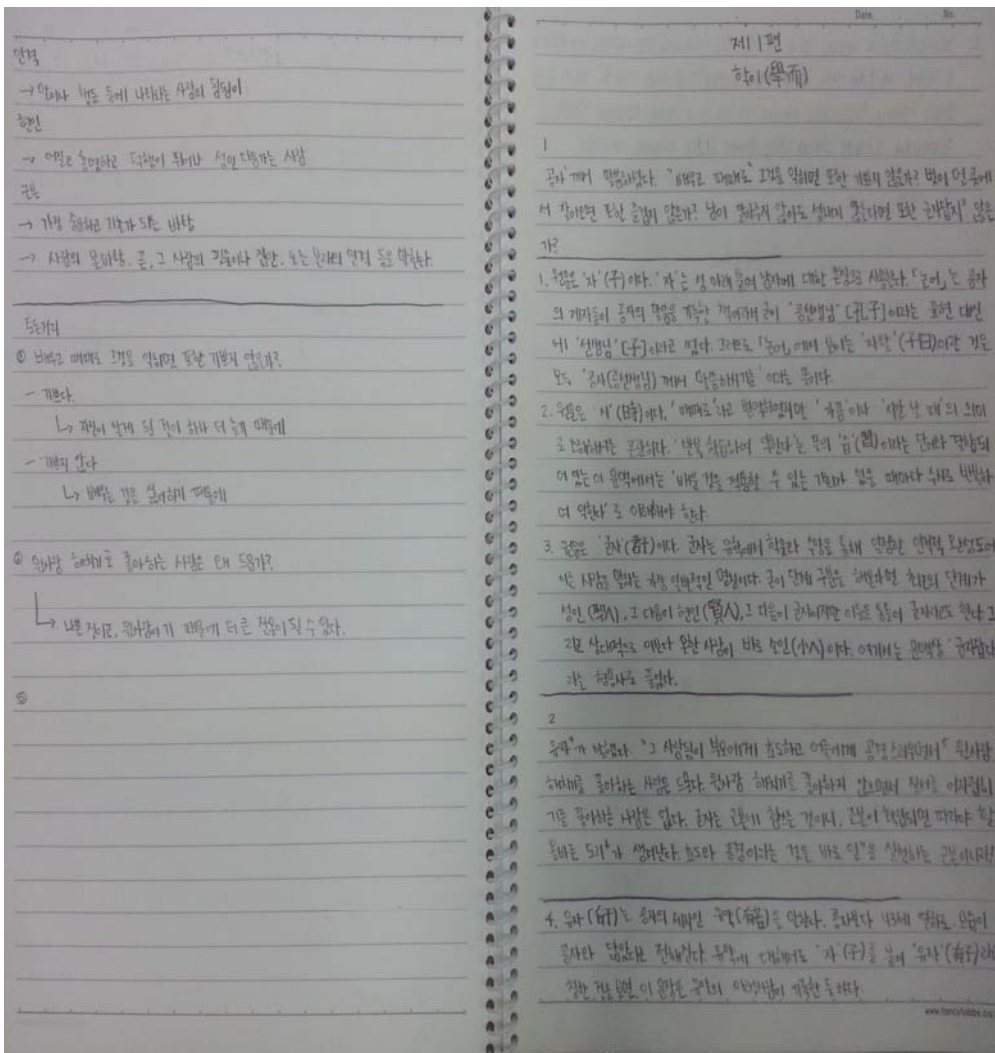 인격
→ 말이나 행동 등에 나타나는 사람의 됨됨이
현인
→ 어질고 총명하고 덕행이 뛰어나 성인 다음가는 사람
근본
→ 가장 중요하고 기초가 되는 바탕
→ 사람의 본바탕. 곧, 그 사람의 핏줄이나 집안, 또는 본래의 인격 등을 말한다.
뜯는거리
① 배우고 때때로 그것을 익히면 또한 기쁘지 않은가?
- 기쁘다.
↳ 자신이 알게 된 것이 하나 더 늘기 때문에
- 기쁘지 않다
↳ 배우는 것을 싫어하기 때문에
② 윗사람 해치기를 좋아하는 사람은 왜 드문가?
↳ 나쁜 짓이고, 윗사람이기 때문에 더 큰 잘못이 될 수 있다.
③
Date. No.
제 1편
학이(學而)
1
공자¹께서 말씀하셨다. "배우고 때때로² 그것을 익히면 또한 기쁘지 않은가? 벗이 먼 곳에
서 찾아오면 또한 즐겁지 않은가? 남이 알아주지 않아도 성내지 않는다면 또한 군자답지³ 않은
가?
1. 원문은 '자'(子)이다. '자'는 성 아래 붙여 남자에 대한 존칭으로 사용한다. 「논어」는 공자
의 제자들이 공자의 말씀을 기록한 책이라서 굳이 '공선생님'[孔子]이라는 표현 대신
에 '선생님'[子]이라고 썼다. 그러므로 「논어」에 보이는 '자왈'(子曰)이란 것은
모두 '공자(공선생님)께서 말씀하시기를'이라는 뜻이다.
2. 원문은 '시'(時)이다. '때때로'라고 번역하였지만 '가끔'이나 '시간 날 때'의 의미
로 이해하기는 곤란하다. '반복 학습하여 익힌다'는 뜻의 '습'(習)이라는 단어와 결합되
어 있는 이 문맥에서는 '배운 것을 적용할 수 있는 기회가 있을 때마다 수시로 반복하
여 익힌다'로 이해해야 한다.
3. 원문은 '군자'(君子)이다. 군자는 유학에서 학습과 수양을 통해 일정한 인격적 완성도에
이른 사람을 말하는 가장 일반적인 명칭이다. 굳이 단계 구분을 해본다면 최고의 단계가
성인(聖人), 그 다음이 현인(賢人), 그 다음이 군자이지만 이들을 통틀어 군자라고도 한다. 그
리고 상대적으로 이보다 못한 사람이 바로 소인(小人)이다. 여기서는 문맥상 '군자답다'
라는 형용사로 풀었다.
2
유자⁴가 말했다. "그 사람됨이 부모에게 효도하고 어른에게 공경스러우면서 윗사람
해치기를 좋아하는 사람은 드물다. 윗사람 해치기를 좋아하지 않으면서 질서를 어지럽히
기를 좋아하는 사람은 없다. 군자는 근본에 힘쓰는 것이니, 근본이 확립되면 따라야 할
올바른 도리가 생겨난다. 효도와 공경이라는 것은 바로 인을 실천하는 근본이니라!
4. 유자(有子)는 공자의 제자인 유약(有若)을 말한다. 공자보다 43세 연하로 모습이
공자와 닮았다고 전해진다. 유약에 대해서도 '자'(子)를 붙여 '유자'(有子)라
칭한 것을 보면, 이 문장은 유약의 제자들이 기록한 듯하다.